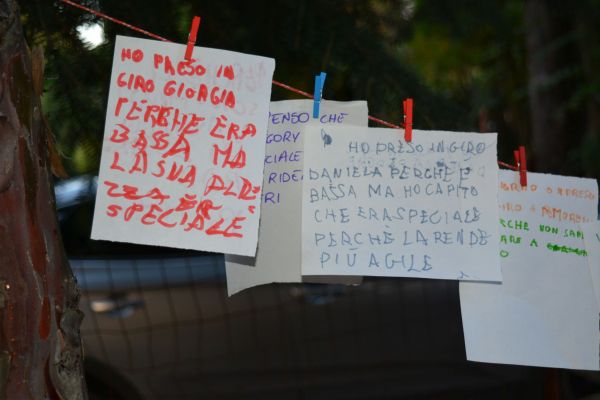 HO PRESO IN
GIRO GIORGIA
PERCHE ERA
BASSA MA
LA SUA
SPECIALE
PENSO CHE
GORY
CIALE
RIDE
ERI
HO PRESO IN GIRO
DANIELA PERCHE È
BASSA MA HO CAPITO
CHE ERA SPECIALE
PERCHÈ LA RENDE
PIÙ AGILE
O PRESO
RCHE NON SA
ARE A
O